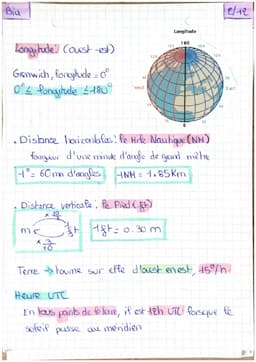 Bia
2/12
Longitude (ouest-est)
Longitude
180
Greenwich, longitude = 0°
0° ≤ longitude ≤ 180°
Ouest
Est
0
. Distance horizontale : le Mile Nautique (NM)
longueur d'une minute d'angle de grand
1° = 60 mn d'angles
1NM = 1.85 Km
. Distance verticale : le Pied (ft)
x 10
m
ft
x 3
10
1ft = 0.30 m
Terre → tourne sur elle d'ouest en est, 15°/h
Heure UTC
En tous points de la terre, il est 12h UTC lorsque le
soleil passe au méridien